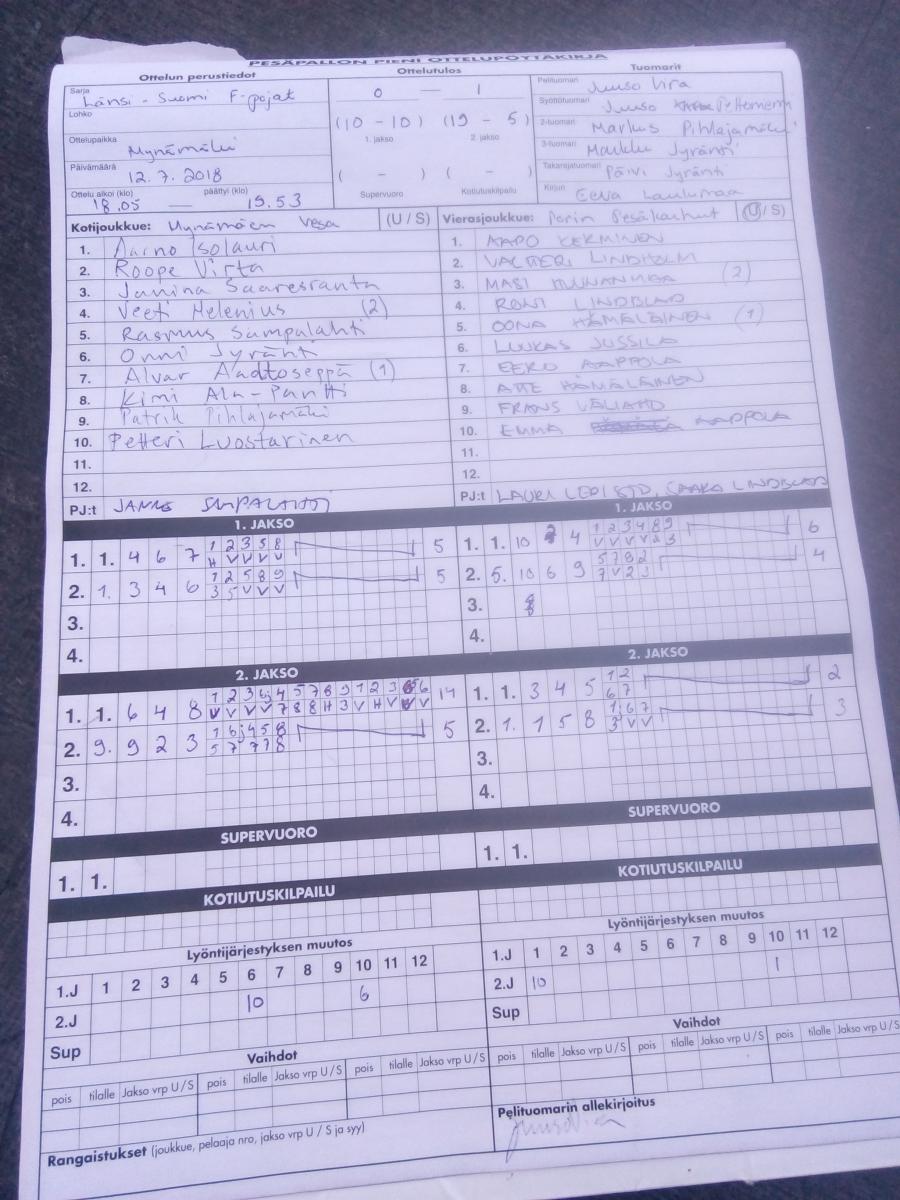 PESÄPALLON PIENI OTTELUPÖYTÄKIRJA
Ottelun perustiedot
Sarja
Länsi - Suomi F-pojat
Lohko
Ottelupaikka
Mynämäki
Päivämäärä
12.7.2018
Ottelu alkoi (klo) päättyi (klo)
18.05 — 19.53
Ottelutulos
0 — 1
(10 - 10) (19 - 5)
1. jakso 2. jakso
( - ) ( - )
Supervuoro Kotiutuskilpailu
Tuomarit
Pelituomari Juuso Vira
Syöttötuomari Juuso
2-tuomari Markus Pihlajamäki
3-tuomari Markku Jyränti
Takarajatuomari Päivi Jyränti
Kirjuri Eeva Laulumaa
Kotijoukkue: Mynämäen Vesa (U / S)
1. Aarno Isolauri
2. Roope Virta
3. Janina Saaresranta
4. Veeti Helenius (2)
5. Rasmus Sampalahti
6. Onni Jyränti
7. Alvar Aadtoseppä (1)
8. Kimi Ala-Pantti
9. Patrik Pihlajamäki
10. Petteri Luostarinen
11.
12.
PJ:t JANNE SAMPALAHTI
Vierasjoukkue: Porin Pesäkarhut (U / S)
1. AAPO KERMINEN
2. VALTTERI LINDHOLM
3. MASI (2)
4. RONI LINDBLAD
5. OONA HÄMÄLÄINEN (1)
6. LUUKAS JUSSILA
7. EERO AAPPOLA
8. ATTE HÄMÄLÄINEN
9. FRANS VÄLIAHO
10. EMMA AAPPOLA
11.
12.
PJ:t LAURI LEPISTÖ, SAARA LINDBLAD
1. JAKSO
1. 1. 4 6 7 1 2 3 5 8 5
H V V V V
2. 1. 3 4 6 1 2 5 8 9 5
3 5 V V V
3.
4.
1. JAKSO
1. 1. 10 4 1 2 3 4 8 9 6
V V V V 2 3
2. 5. 10 6 9 5 7 8 2 4
7 V 2 3
3.
4.
2. JAKSO
1. 1. 6 4 8 1 2 3 6 4 5 7 8 9 1 2 3 5 6 14
V V V V 7 8 8 H 3 V H V V V
2. 9. 9 2 3 1 6 4 5 8 5
5 7 7 7 8
3.
4.
2. JAKSO
1. 1. 3 4 5 1 2 2
6 7
2. 1. 1 5 8 1 6 7 3
3 V V
3.
4.
SUPERVUORO
1. 1.
SUPERVUORO
1. 1.
KOTIUTUSKILPAILU
KOTIUTUSKILPAILU
Lyöntijärjestyksen muutos
1.J 1 2 3 4 5 6 7 8 9 10 11 12
2.J 10 6
Sup
Lyöntijärjestyksen muutos
1.J 1 2 3 4 5 6 7 8 9 10 11 12
2.J 10 1
Sup
Vaihdot
pois tilalle Jakso vrp U / S pois tilalle Jakso vrp U / S pois tilalle Jakso vrp U / S
Vaihdot
pois tilalle Jakso vrp U / S pois tilalle Jakso vrp U / S
Rangaistukset (joukkue, pelaaja nro, jakso vrp U / S ja syy)
Pelituomarin allekirjoitus